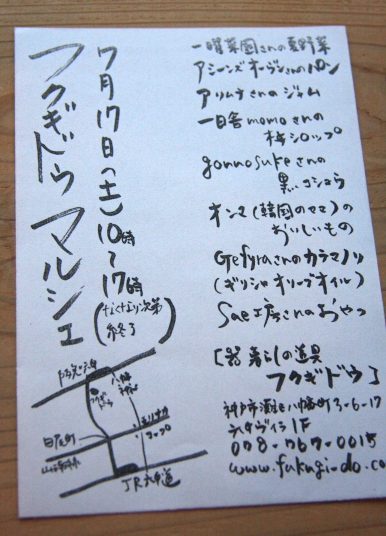 フクギドウ マルシェ
7月17日(土)
10時〜17時
(なくなり次第終了)
一曜菜園さんの夏野菜
アシーンズオーヴンさんのパン
アリムナさんのジャム
一日舎momoさんの
梅シロップ
gonnosukeさんの
黒コショウ
オンマ(韓国のママ)の
おいしいもの
Gefyraさんのカラマノリ
(ギリシャオリーブオイル)
Sae工房さんのおやつ
[器 暮らしの道具
フクギドウ]
神戸市灘区八幡町3-6-17
六甲ヴィラ1F
078-767-0015
www.fukugi-do.co
阪急六甲
八幡
フクギドウ
コープ
山手幹線
JR六甲道